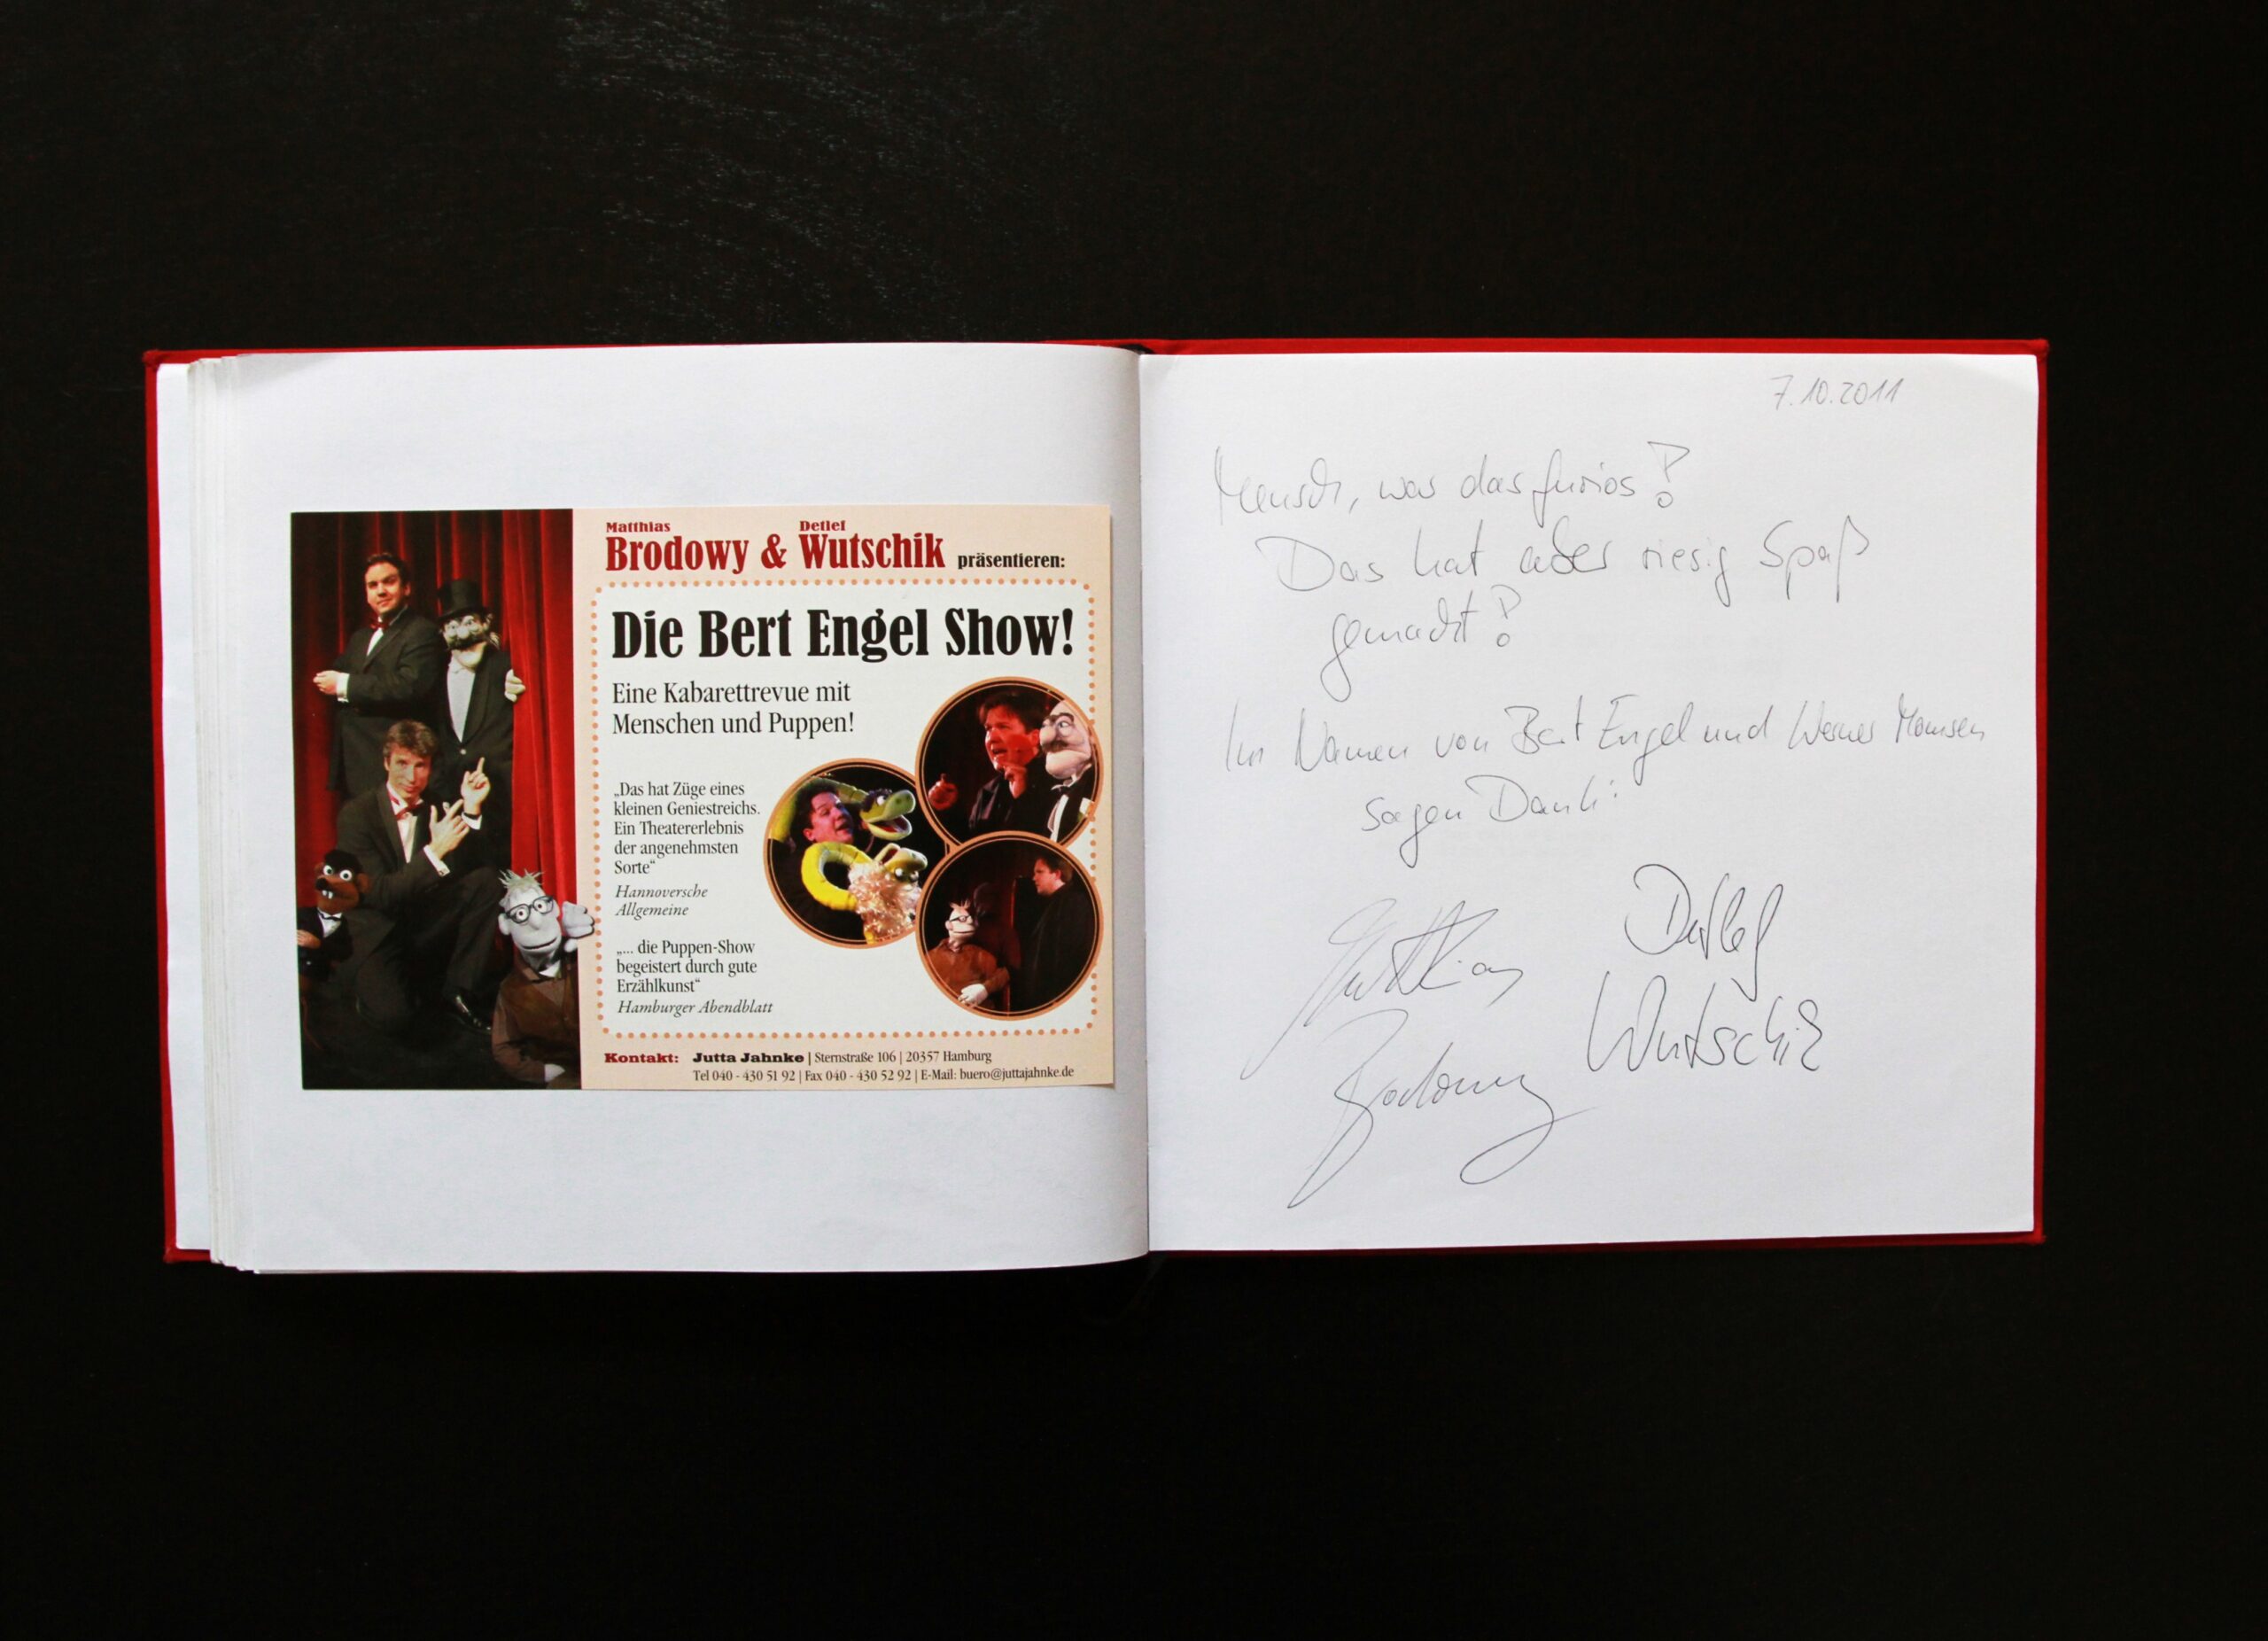 Matthias Detlef
Brodowy & Wutschik präsentieren:
Die Bert Engel Show!
Eine Kabarettrevue mit
Menschen und Puppen!
„Das hat Züge eines
kleinen Geniestreichs.
Ein Theatererlebnis
der angenehmsten
Sorte“
Hannoversche
Allgemeine
„... die Puppen-Show
begeistert durch gute
Erzählkunst“
Hamburger Abendblatt
Kontakt: Jutta Jahnke | Sternstraße 106 | 20357 Hamburg
Tel 040 - 430 51 92 | Fax 040 - 430 52 92 | E-Mail: buero@juttajahnke.de
7.10.2011
Mensch, war das furios!
Das hat aber riesig Spaß
gemacht!
Im Namen von Bert Engel und Werner Momsen
sagen Dank:
Matthias
Brodowy
Detlef
Wutschik